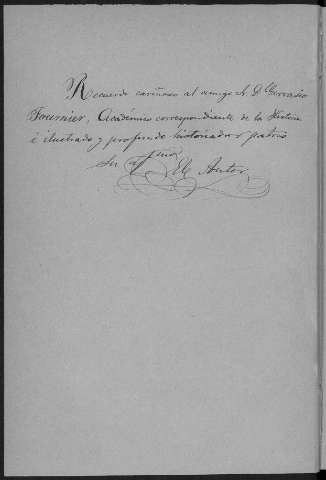 Recuerdo cariñoso al amigo Sr. Dn. Gervasio
Fournier, Académico correspondiente de la Historia
é ilustrado y profundo historiador patrio
Su
El Autor